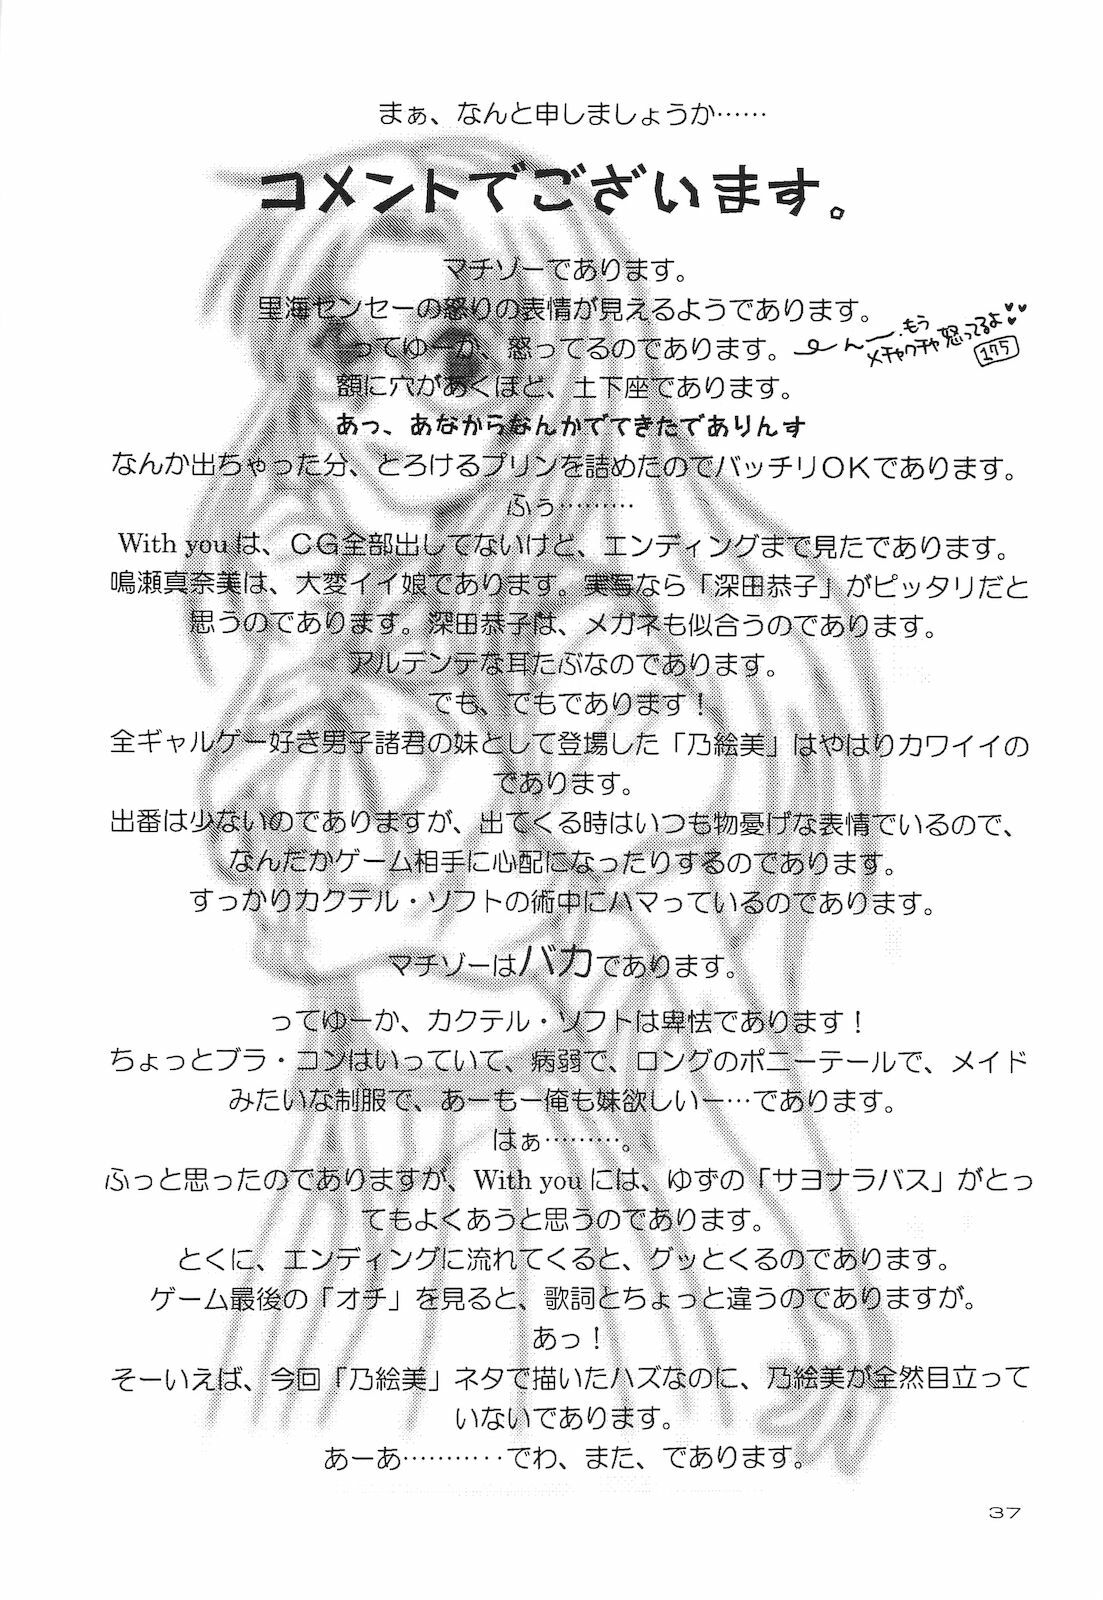 まぁ、なんと申しましょうか……
コメントでございます。
マチゾーであります。
里海センセーの怒りの表情が見えるようであります。
ってゆーか、怒ってるのであります。
んー.もう
メチャクチャ怒ってるよ♥♥
額に穴があくほど、土下座であります。
あっ、あなからなんかでてきたでありんす
なんか出ちゃった分、とろけるプリンを詰めたのでバッチリOKであります。
ふぅ………
With youは、CG全部出してないけど、エンディングまで見たであります。
鳴瀬真奈美は、大変イイ娘であります。実写なら「深田恭子」がピッタリだと
思うのであります。深田恭子は、メガネも似合うのであります。
アルデンテな耳たぶなのであります。
でも、でもであります！
全ギャルゲー好き男子諸君の妹として登場した「乃絵美」はやはりカワイイの
であります。
出番は少ないのでありますが、出てくる時はいつも物憂げな表情でいるので、
なんだかゲーム相手に心配になったりするのであります。
すっかりカクテル・ソフトの術中にハマっているのであります。
マチゾーはバカであります。
ってゆーか、カクテル・ソフトは卑怯であります！
ちょっとブラ・コンはいっていて、病弱で、ロングのポニーテールで、メイド
みたいな制服で、あーもー俺も妹欲しいー…であります。
はぁ………。
ふっと思ったのでありますが、With youには、ゆずの「サヨナラバス」がとっ
てもよくあうと思うのであります。
とくに、エンディングに流れてくると、グッとくるのであります。
ゲーム最後の「オチ」を見ると、歌詞とちょっと違うのでありますが。
あっ！
そーいえば、今回「乃絵美」ネタで描いたハズなのに、乃絵美が全然目立って
いないであります。
あーあ…………でわ、また、であります。
37